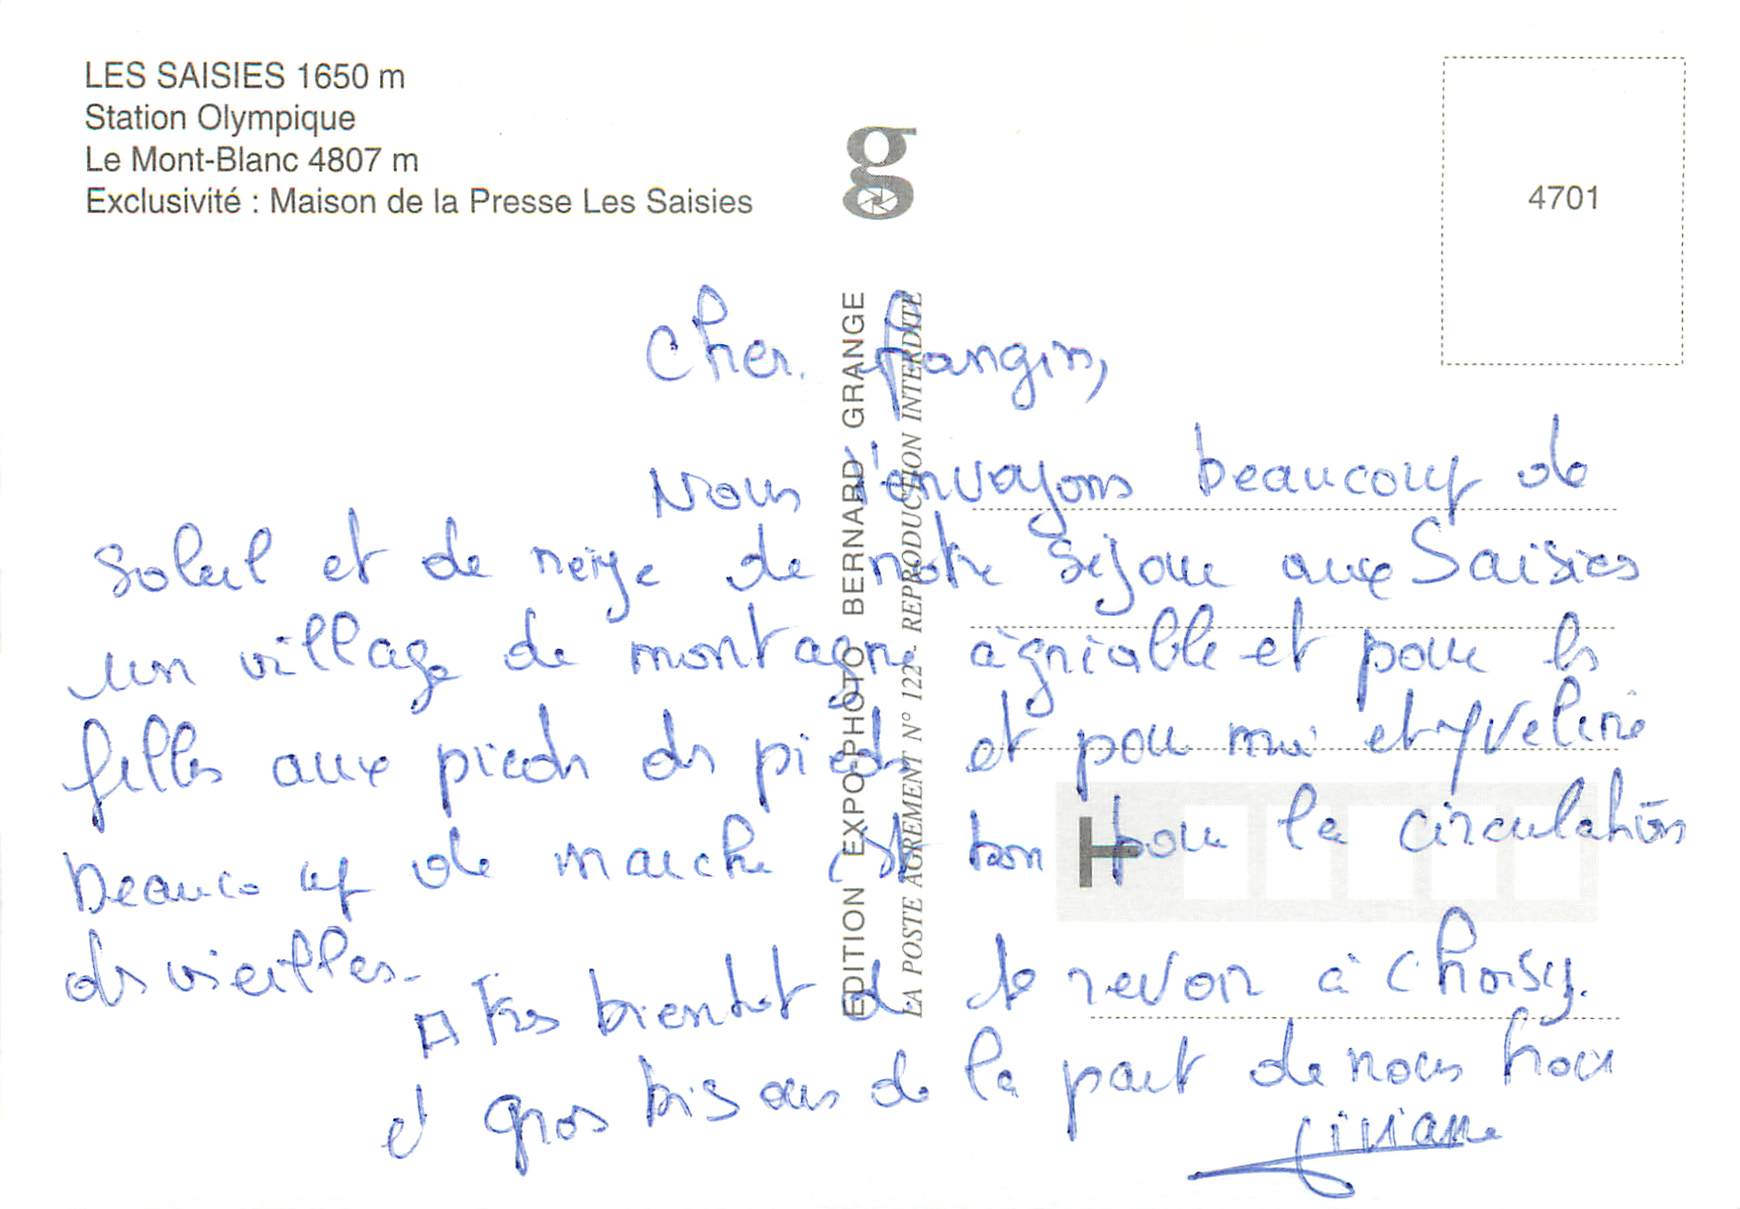 LES SAISIES 1650 m
Station Olympique
Le Mont-Blanc 4807 m
Exclusivité : Maison de la Presse Les Saisies
g
4701
EDITION EXPO-PHOTO BERNARD GRANGE
LA POSTE AGREMENT N° 122 - REPRODUCTION INTERDITE
Cher frangin,
Nous t'envoyons beaucoup de
soleil et de neige de notre séjour aux Saisies
un village de montagne agriable et pour les
filles aux pieds des pieds et pour moi et Yveline
beaucoup de marche est bon pour la circulation
des vieilles.
A très bientôt de te revoir à Choisy.
et gros bisous de la part de nous tous